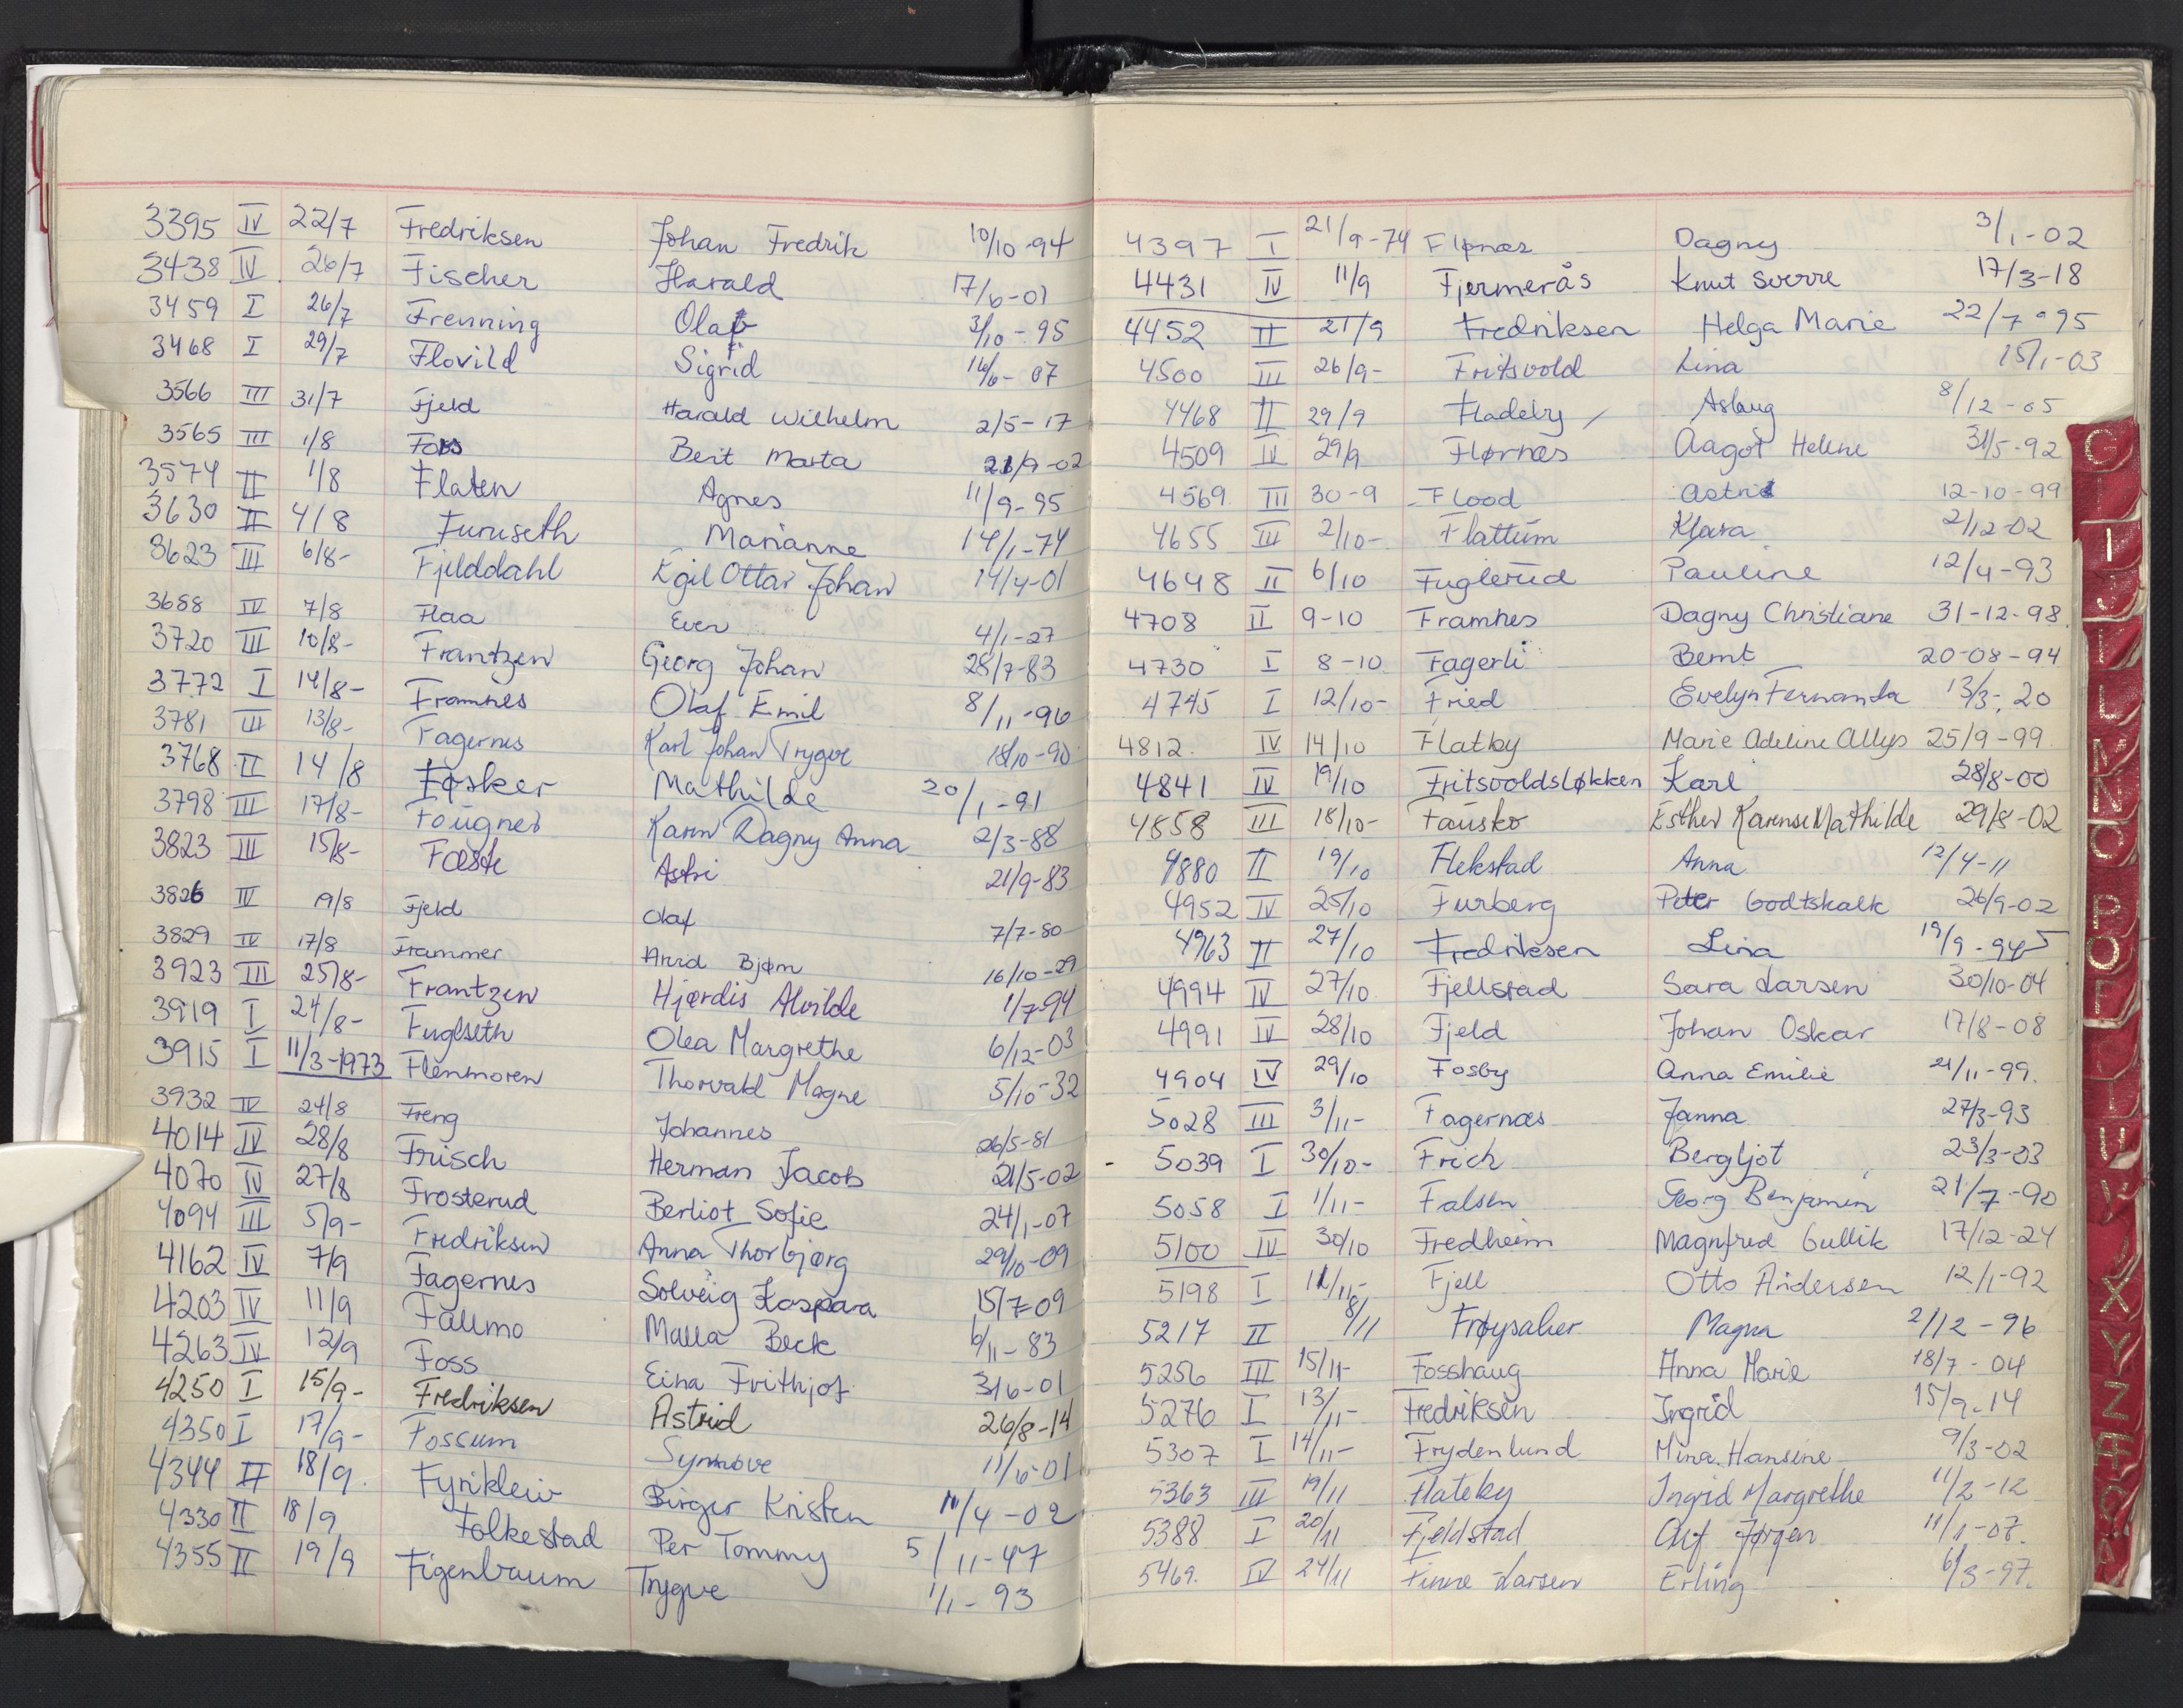 3395 IV 22/7 Fredriksen Johan Fredrik 10/10-94
3438 IV 26/7 Fischer Harald 17/6-01
3459 I 26/7 Frenning Olaf 3/10-95
3468 I 29/7 Flovild Sigrid 16/6-07
3566 III 31/7 Fjeld Harald Wilhelm 2/5-17
3565 III 1/8 Foss Berit Marta 21/9-02
3574 II 1/8 Flaten Agnes 11/9-95
3630 II 4/8 Furuseth Marianne 14/1-74
3623 III 6/8- Fjelddahl Egil Ottar Johan 14/4-01
3688 IV 7/8 Flaa Even 4/1-27
3720 III 10/8- Frantzen Georg Johan 28/7-83
3772 I 14/8- Framnes Olaf Emil 8/11-96
3781 III 13/8- Fagernes Karl Johan Trygve 18/10-90
3768 II 14/8 Føsker Mathilde 20/1-91
3798 III 17/8- Fougner Karin Dagny Anna 2/3-88
3823 III 15/8- Fæste Astri 21/9-83
3826 IV 19/8 Fjeld Olaf 7/7-80
3829 IV 17/8 Frammer Arvid Bjørn 16/10-29
3923 III 25/8- Frantzen Hjørdis Alvilde 1/7-94
3919 I 24/8- Fuglseth Olea Margrethe 6/12-03
3915 I 11/3-1973 Flenmoren Thorvald Magne 5/10-32
3932 IV 24/8 Freng Johannes 26/5-81
4014 IV 28/8 Frisch Herman Jacob 21/5-02
4070 IV 27/8 Frosterud Berliot Sofie 24/1-07
4094 III 5/9- Fredriksen Anna Thorbjørg 29/10-09
4162 IV 7/9 Fagernes Solveig Kaspara 15/7-09
4203 IV 11/9 Fallmo Malla Beck 6/11-83
4263 IV 12/9 Foss Eina Frithjof 3/6-01
4250 I 15/9- Fredriksen Astrid 26/8-14
4350 I 17/9- Fossum Synnøve 11/6-01
4344 II 18/9. Fyrikleiv Birger Kristen 10/4-02
4330 II 18/9 Folkestad Per Tommy 5/11-47
4355 II 19/9 Figenbaum Trygve 1/1-93
4397 I 21/9-74 Flønæs Dagny 3/1-02
4431 IV 11/9 Fjermerås Knut Sverre 17/3-18
4452 II 21/9 Fredriksen Helga Marie 22/7-95
4500 III 26/9- Fritsvold Lina 15/1-03
4468 II 29/9 Fladeby Aslaug 8/12-05
4509 IV 29/9 Flørnæs Aagot Helene 31/5-92
4569. III 30-9 Flood Astrid 12-10-99
4655 III 2/10- Flattum Klara 2/12-02
4648 II 6/10 Fuglerud Pauline 12/4-93
4708 II 9-10 Framnes Dagny Christiane 31-12-98
4730 I 8-10 Fagerli Bernt 20-08-94
4745 I 12/10- Fried Evelyn Fernanda 13/3-20
4812. IV 14/10 Flatby Marie Adeline Allys 25/9-99
4841 IV 19/10 Fritsvoldsløkken Karl 28/8-00
4858 III 18/10- Fausko Esther Karense Mathilde 29/8-02
4880 II 19/10 Flekstad Anna 12/4-11
4952 IV 25/10 Furberg Peter Godtskalk 26/9-02
4963 II 27/10 Fredriksen Lina 19/9-945
4994 IV 27/10 Fjellstad Sara Larsen 30/10-04
4991 IV 28/10 Fjeld Johan Oskar 17/8-08
4904 IV 29/10 Fosby Anna Emilie 21/11-99.
5028 III 3/11- Fagernæs Janna 27/3-93
5039 I 30/10- Frich Bergljot 23/3-03
5058 I 1/11- Falsen Georg Benjamin 21/7-90
5100 IV 30/10 Fredheim Magnfred Gullik 17/12-24
5198 I 11/11- Fjell Otto Andersen 12/1-92
5217 II 8/11 Frøysaker Magna 2/12-96
5256 III 15/11- Fosshaug Anna Marie 18/7-04
5276 I 13/11- Fredriksen Ingrid 15/9-14
5307 I 14/11- Frydenlund Mina Hansine 9/3-02
5363 III 19/11 Flateby Ingrid Margrethe 11/2-12
5388 I 20/11 Fjeldstad Alf Jørgen 11/1-07.
5469. IV 24/11 Finne Larsen Erling 6/3-97.
G
I
J
L
N
O
P
X
Y
Z
Æ